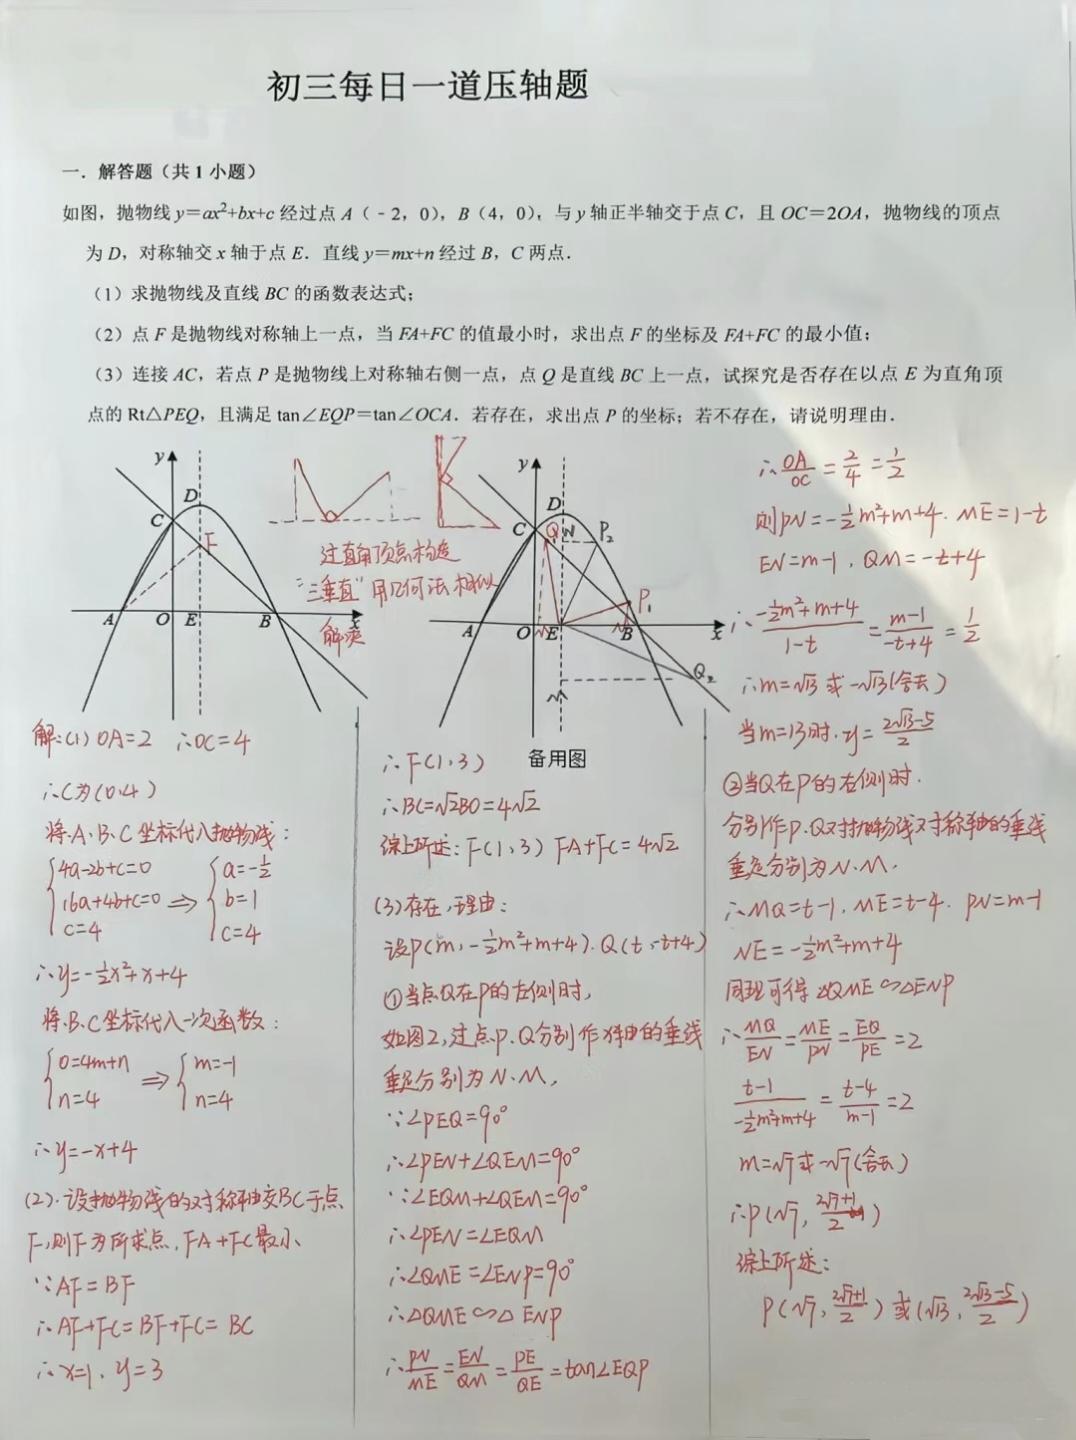 初三每日一道压轴题
一．解答题（共1小题）
如图，抛物线y＝ax²+bx+c经过点A（﹣2，0），B（4，0），与y轴正半轴交于点C，且OC＝2OA，抛物线的顶点
为D，对称轴交x轴于点E．直线y＝mx+n经过B，C两点．
（1）求抛物线及直线BC的函数表达式；
（2）点F是抛物线对称轴上一点，当FA+FC的值最小时，求出点F的坐标及FA+FC的最小值；
（3）连接AC，若点P是抛物线上对称轴右侧一点，点Q是直线BC上一点，试探究是否存在以点E为直角顶
点的Rt△PEQ，且满足tan∠EQP＝tan∠OCA．若存在，求出点P的坐标；若不存在，请说明理由．
y
D
C
F
A
O
E
B
x
过直角顶点构造
"三垂直"用几何法相似
解决
y
D
C
Q₁
N
P₂
P₁
A
O
M
E
N
B
x
Q₂
M
备用图
解:(1) OA=2 ∴OC=4
∴C为(0,4)
将A、B、C坐标代入抛物线:
4a-2b+c=0
16a+4b+c=0
c=4
⇒
a=-1/2
b=1
c=4
∴y=-½x²+x+4
将B、C坐标代入一次函数:
0=4m+n
n=4
⇒
m=-1
n=4
∴y=-x+4
(2).设抛物线的对称轴交BC于点
F,则F为所求点,FA+FC最小
∵AF=BF
∴AF+FC=BF+FC=BC
∴x=1, y=3
∴F(1,3)
∴BC=√2BO=4√2
综上所述:F(1,3) FA+FC=4√2
(3)存在,理由:
设P(m,-½m²+m+4).Q(t,-t+4)
①当点Q在P的左侧时,
如图2,过点P、Q分别作x轴的垂线
垂足分别为N、M,
∵∠PEQ=90°
∴∠PEN+∠QEM=90°
∵∠EQM+∠QEM=90°
∴∠PEN=∠EQM
∴∠QME=∠ENP=90°
∴△QME∽△ENP
∴PN/ME=EN/QM=PE/QE=tan∠EQP
∴OA/OC=2/4=1/2
则PN=-½m²+m+4. ME=1-t
EN=m-1, QM=-t+4
∴(-½m²+m+4)/(1-t)=(m-1)/(-t+4)=1/2
∴m=√13或-√13(舍去)
当m=13时,y=(2√13-5)/2
②当Q在P的右侧时.
分别作P、Q对抛物线对称轴的垂线
垂足分别为N、M.
∴MQ=t-1, ME=t-4. PN=m-1
NE=-½m²+m+4
同理可得△QME∽△ENP
∴MQ/EN=ME/PN=EQ/PE=2
(t-1)/(-½m²+m+4)=(t-4)/(m-1)=2
m=√7或-√7(舍去)
∴P(√7, (2√7+1)/2)
综上所述:
P(√7, (2√7+1)/2)或(√13, (2√13-5)/2)